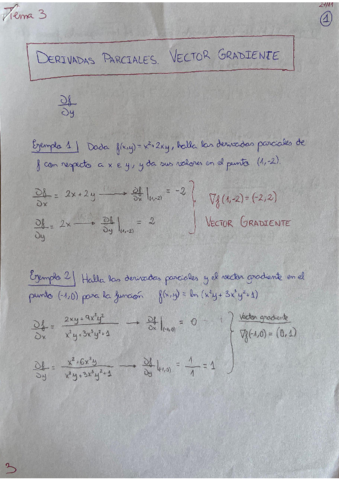 Tema 3
1
DERIVADAS PARCIALES. VECTOR GRADIENTE
∂f/∂y
Ejemplo 1 | Dada f(x,y) = x²+2xy, halla las derivadas parciales de
f con respecto a x e y, y da sus valores en el punto (1,-2)
∂f/∂x = 2x+2y → ∂f/∂x|(1,-2) = -2
∇f(1,-2) = (-2,2)
∂f/∂y = 2x → ∂f/∂y|(1,-2) = 2
VECTOR GRADIENTE
Ejemplo 2 | Halla las derivadas parciales y el vector gradiente en el
punto (-1,0) para la función f(x,y) = ln (x²y+3x³y²+1)
∂f/∂x = 2xy+9x²y²/x²y+3x³y²+1 → ∂f/∂x|(-1,0) = 0
Vector gradiente
∇f(-1,0) = (0,1)
∂f/∂y = x²+6x³y/x²y+3x³y²+1 → ∂f/∂y|(-1,0) = 1/1 = 1
3